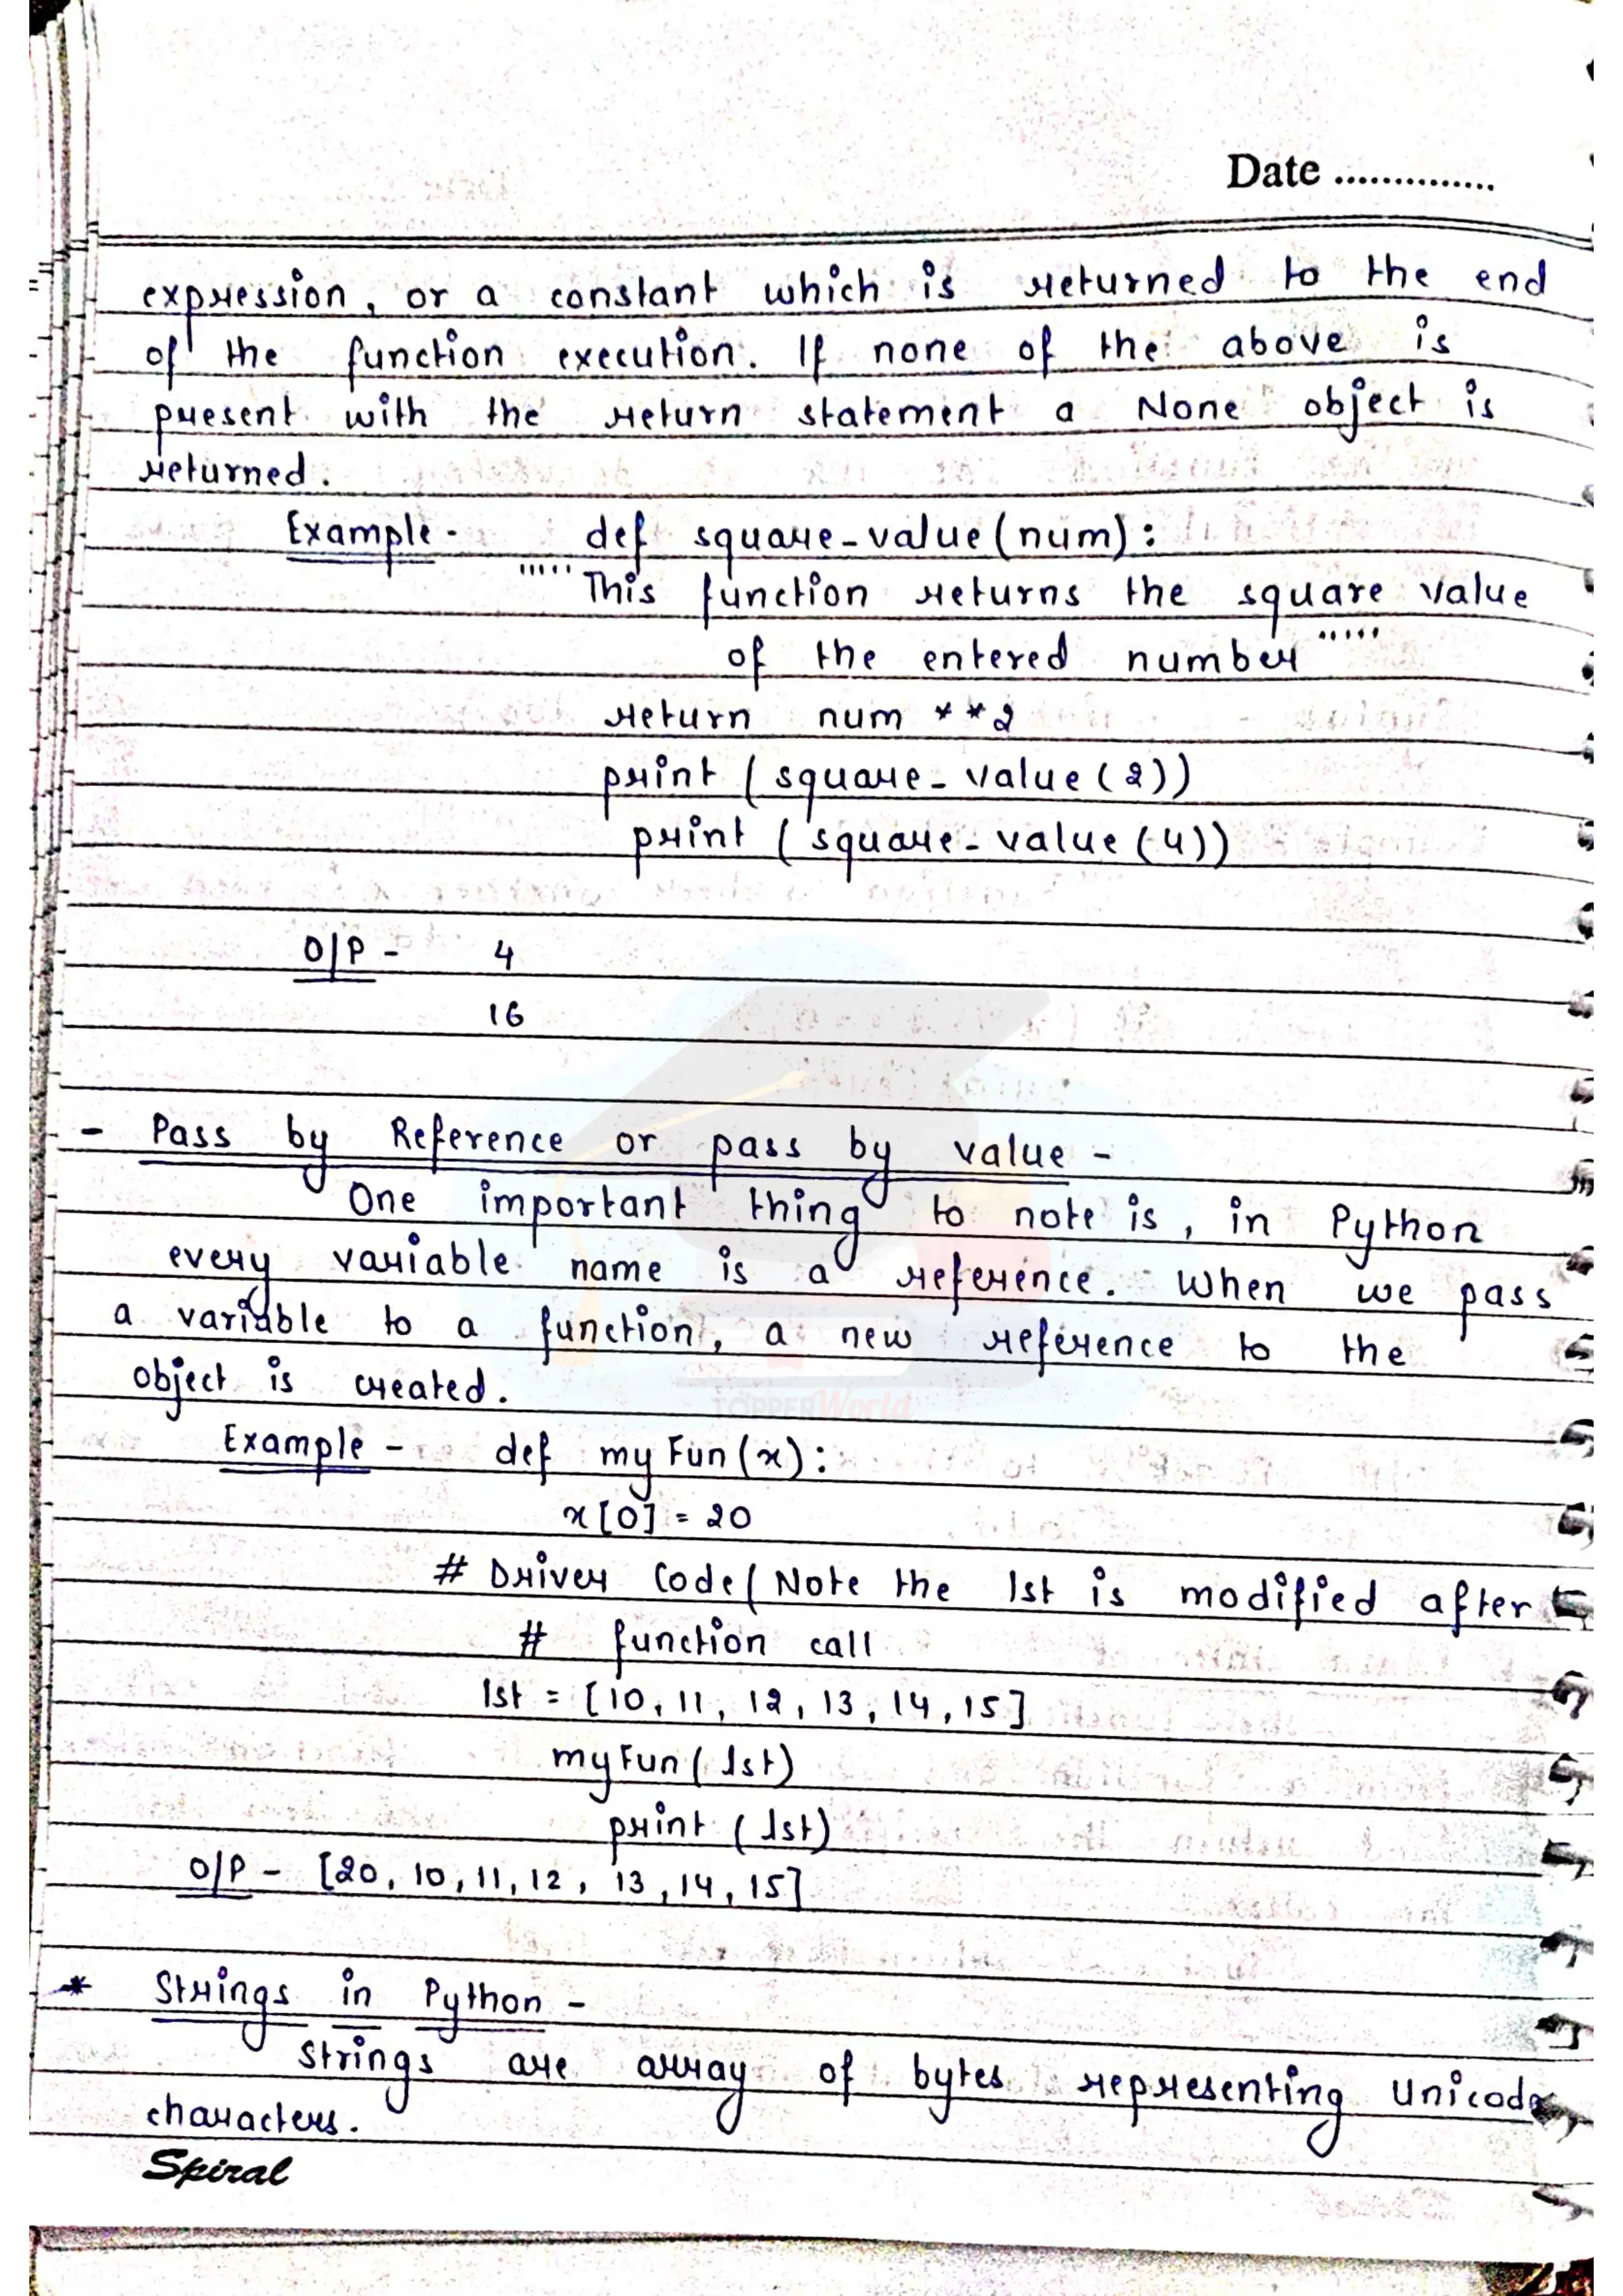 Date ..............
expression, or a constant which is returned to the end
of the function execution. If none of the above is
present with the return statement a None object is
returned.
Example - def square_value(num):
""""" This function returns the square value
of the entered number """""
return num **2
print (square_value(2))
print (square_value(4))
O/P - 4
16
- Pass by Reference or pass by value -
One important thing to note is, in Python
every variable name is a reference. When we pass
a variable to a function, a new reference to the
object is created.
TOPPERWorld
Example - def myFun(x):
x[0] = 20
# Driver Code (Note the lst is modified after
# function call
lst = [10, 11, 12, 13, 14, 15]
myFun(lst)
print (lst)
O/P - [20, 10, 11, 12, 13, 14, 15]
* Strings in Python -
Strings are array of bytes representing Unicode
characters.
Spiral